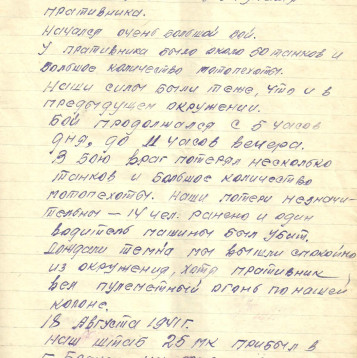 пративника.
Начался очень большой бой.
У пративника было около 50 танков и
большое количество мотопехоты.
Наши силы были теже, что и в
предыдущем окружении.
Бой продолжался с 5 часов
дня, до 11 часов вечера.
В бою враг потерял несколько
танков и большое количество
мотопехоты. Наши потери незначи-
тельны – 14 чел. ранено и один
водитель машины был убит.
Дождали темна мы вышли спокойно
из окружения, хотя пративник
вел пулеметный огонь по нашей
колоне.
18 Августа 1941 г.
Наш штаб 25 МК прибыл в